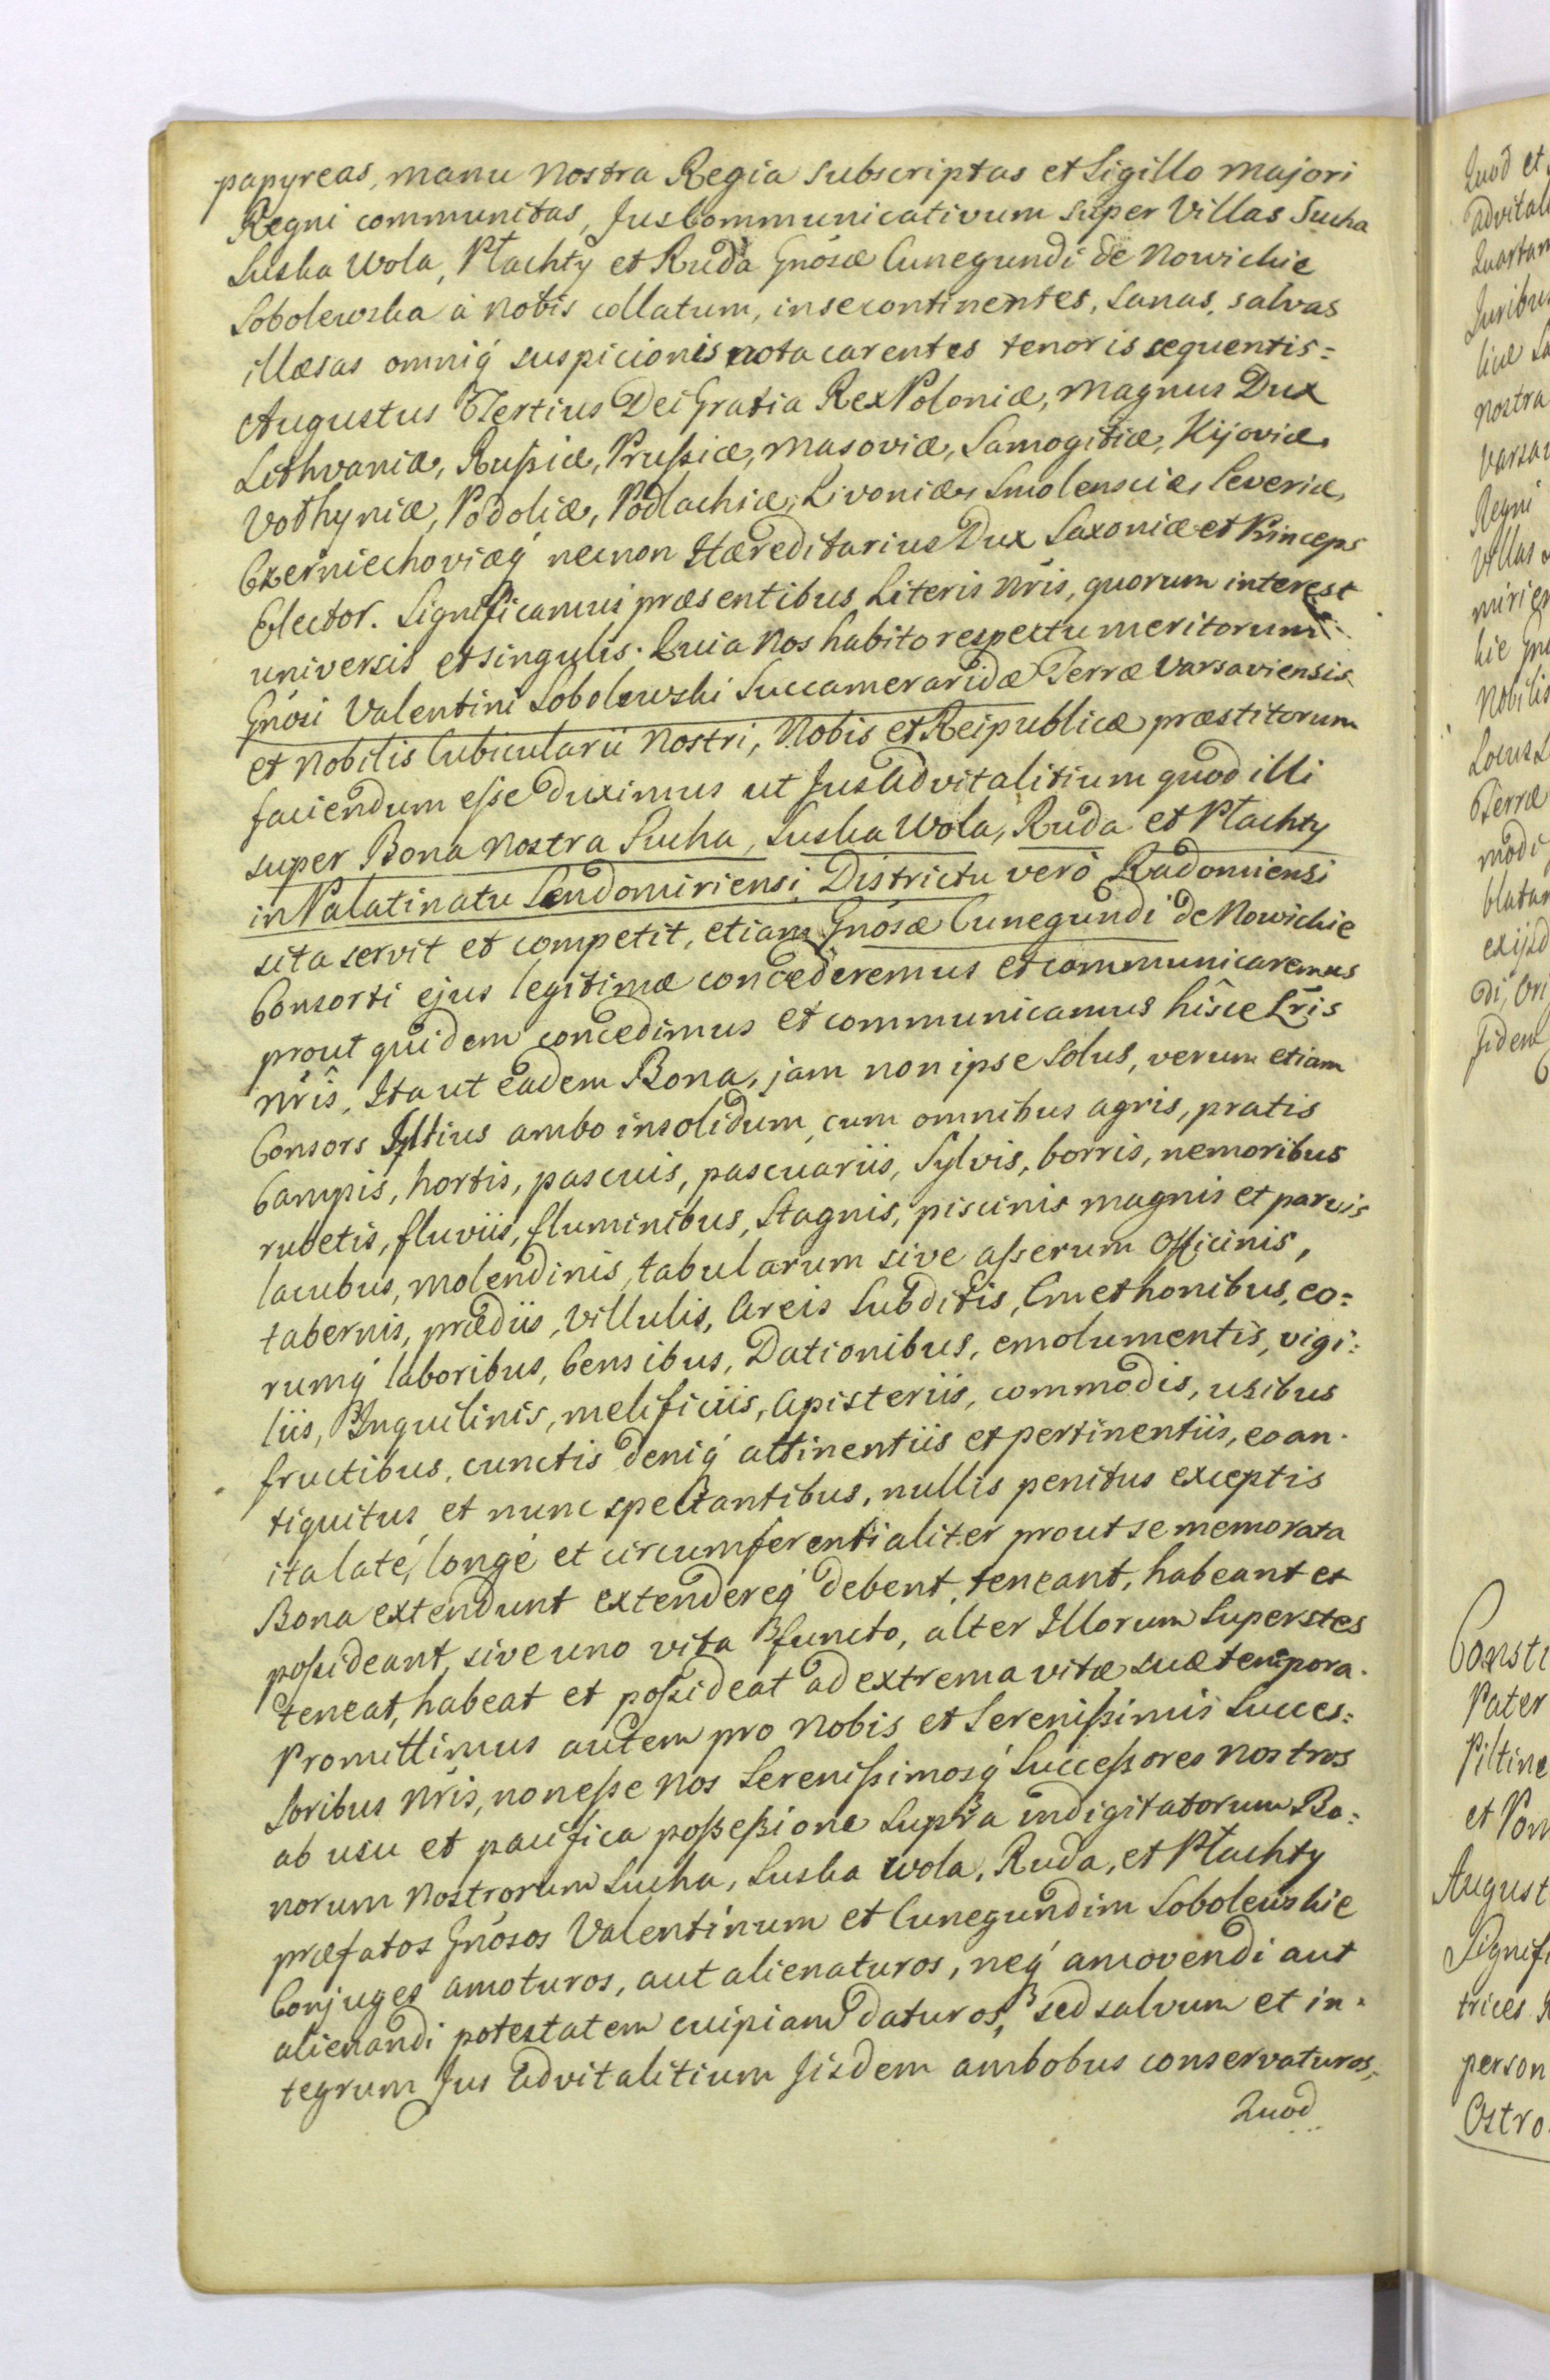 papyreas, manu Nostra Regia subscriptas et Sigillo majori
Regni communitas, Jus Communicativum super Villas Sucha
Suska Wola, Płachty et Ruda Gnosæ Cunegundi de Nowickie
Sobolewska à Nobis collatum, in se continentes, sanas, salvas
illæsas omniq́ suspicionis nota carentes tenoris sequentis=
Augustus Tertius Dei Gratia Rex Poloniæ, Magnus Dux
Lithvaniæ, Russiæ, Prussiæ, Masoviæ, Samogitiæ, Kijoviæ,
Volhyniæ, Podoliæ, Podlachiæ, Livoniæ, Smolensciæ, Severiæ,
Czerniechoviæq́ necnon Hæreditarius Dux Saxoniæ et Princeps
Elector. Significamus præsentibus Literis Nris, quorum interest
universis et singulis. Quia Nos habito respectu meritorum
Gnosi Valentini Sobolewski Succameraridæ Terræ Varsaviensis
et Nobilis Cubicularii Nostri, Nobis et Reipublicæ præstitorum
faciendum esse duximus ut Jus Advitalitium quod illi
super Bona Nostra Sucha, Suska Wola, Ruda et Płachty
in Palatinatu Sendomiriensi, Districtu verò Radomiensi
sita servit et competit, etiam Gnosæ Cunegundi de Nowickie
Consorti ejus legitimæ concederemus et communicaremus
prout quidem concedimus et communicamus hisce Lris
Nris, Ita ut eadem Bona, jam non ipse solus, verum etiam
Consors Illius ambo insolidum, cum omnibus agris, pratis
Campis, hortis, pascuis, pascuariis, Sylvis, borris, nemoribus
rubetis, fluviis, fluminibus, Stagnis, piscinis magnis et parvis
lacubus, molendinis, tabularum sive asserum Officinis,
tabernis, prædiis, Villulis, Areis Subditis, Cmethonibus, eo=
rumq́ laboribus, Censibus, Dationibus, emolumentis, vigi=
liis, Inquilinis, melificiis, Apisteriis, commodis, usibus
fructibus, cunctis deniq́ attinentiis et pertinentiis, eo an-
tiquitus et nunc spectantibus, nullis penitus exceptis
ita latè, longè et circumferentialiter prout se memorata
Bona extendunt extendereq́ debent, teneant, habeant et
possideant, sive uno vita functo, alter Illorum Superstes
teneat, habeat et possideat ad extrema vitæ suæ tempora.
Promittimus autem pro Nobis et Serenissimis Succes=
soribus Nris, non esse Nos Serenissimosq́ Successores Nostros
ab usu et pacifica possessione supra indigitatorum Bo=
norum Nostrorum Sucha, Suska Wola, Ruda, et Płachty
præfatos Gnosos Valentinum et Cunegundim Sobolewskie
Conjuges amoturos, aut alienaturos, neq́ amovendi aut
alienandi potestatem cuipiam daturos, sed salvum et in-
tegrum Jus Advitalitium Iisdem ambobus conservaturos,
Quod
Quod et
advital
Juribus
nostra
Regni
Villas
Nobilis
Terræ
modi
Consti
Pater
Piltinæ
et Pom
August
Signifi
trices
person
Ostro